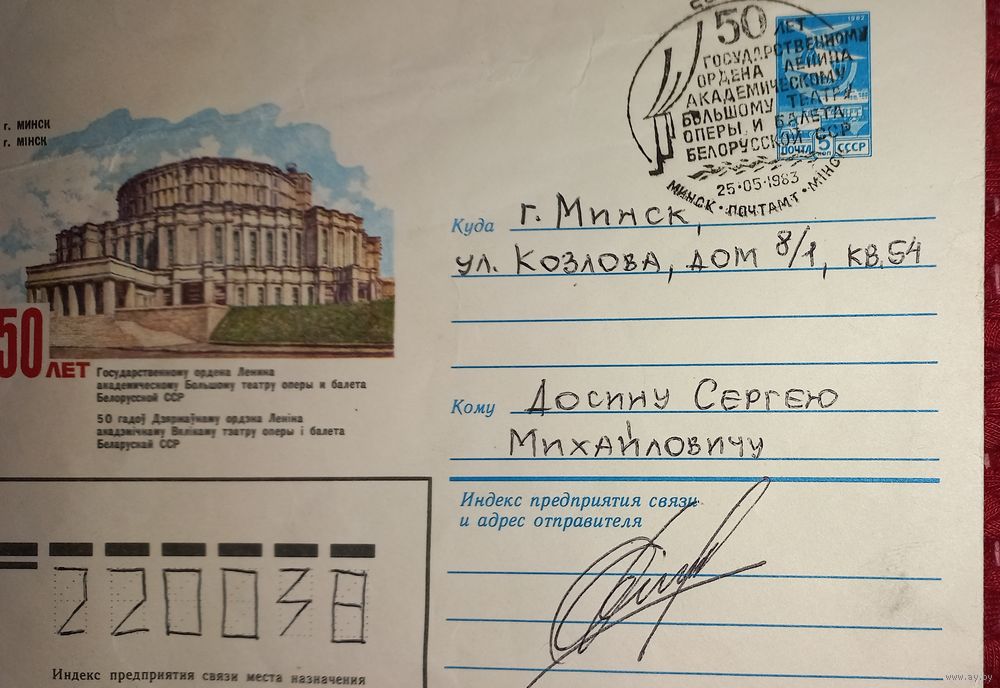 50 ЛЕТ
ГОСУДАРСТВЕННОМУ
ОРДЕНА ЛЕНИНА
АКАДЕМИЧЕСКОМУ
БОЛЬШОМУ ТЕАТРУ
ОПЕРЫ И БАЛЕТА
БЕЛОРУССКОЙ ССР
25·05·1983
МИНСК · ПОЧТАМТ · МІНСК
1982
ПОЧТА 5 КОП СССР
г. МИНСК
г. МІНСК
50 ЛЕТ
Государственному ордена Ленина
академическому Большому театру оперы и балета
Белорусской ССР
50 гадоў Дзяржаўнаму ордэна Леніна
акадэмічнаму Вялікаму тэатру оперы і балета
Беларускай ССР
Куда г. Минск,
ул. Козлова, дом 8/1, кв. 54
Кому Досину Сергею
Михайловичу
Индекс предприятия связи
и адрес отправителя
220038
Индекс предприятия связи места назначения
www.ay.by